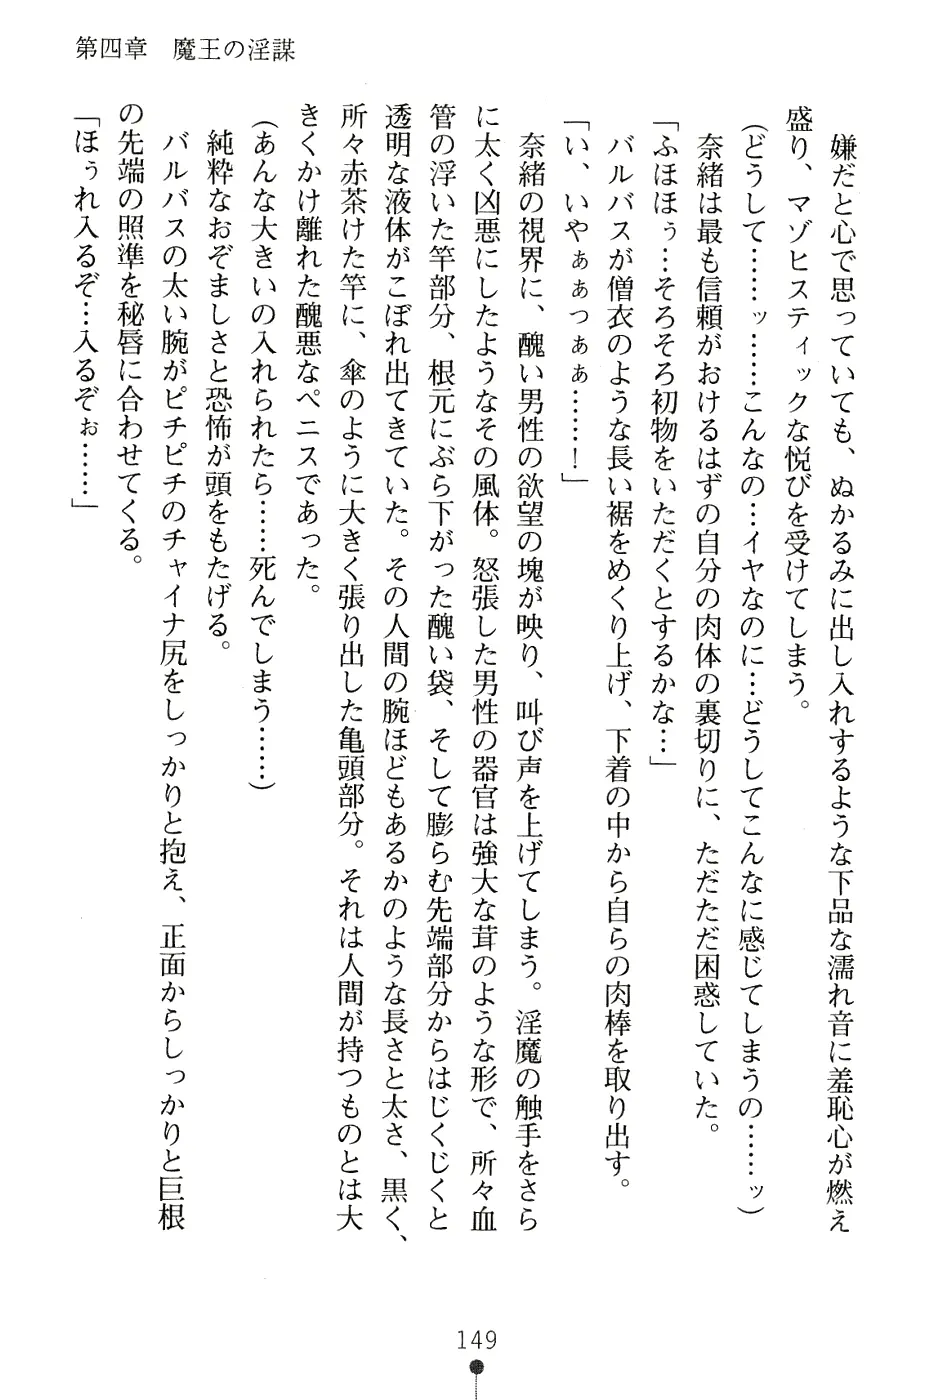 第四章　魔王の淫謀
　嫌だと心で思っていても、ぬかるみに出し入れするような下品な濡れ音に羞恥心が燃え
盛り、マゾヒスティックな悦びを受けてしまう。
（どうして……ッ……こんなの…イヤなのに…どうしてこんなに感じてしまうの……ッ）
　奈緒は最も信頼がおけるはずの自分の肉体の裏切りに、ただただ困惑していた。
「ふほほぅ…そろそろ初物をいただくとするかな…」
　バルバスが僧衣のような長い裾をめくり上げ、下着の中から自らの肉棒を取り出す。
「い、いやぁぁっぁぁ……！」
　奈緒の視界に、醜い男性の欲望の塊が映り、叫び声を上げてしまう。淫魔の触手をさら
に太く凶悪にしたようなその風体。怒張した男性の器官は強大な茸のような形で、所々血
管の浮いた竿部分、根元にぶら下がった醜い袋、そして膨らむ先端部分からはじくじくと
透明な液体がこぼれ出てきていた。その人間の腕ほどもあるかのような長さと太さ、黒く、
所々赤茶けた竿に、傘のように大きく張り出した亀頭部分。それは人間が持つものとは大
きくかけ離れた醜悪なペニスであった。
（あんな大きいの入れられたら……死んでしまう……）
　純粋なおぞましさと恐怖が頭をもたげる。
　バルバスの太い腕がピチピチのチャイナ尻をしっかりと抱え、正面からしっかりと巨根
の先端の照準を秘唇に合わせてくる。
「ほぅれ入るぞ…入るぞぉ……」
149